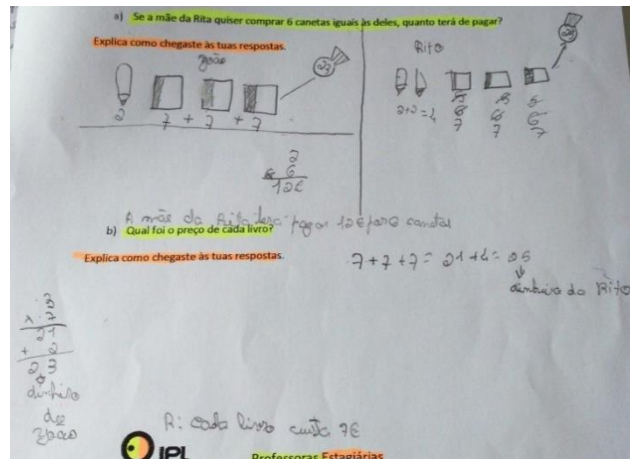 a) Se a mãe da Rita quiser comprar 6 canetas iguais às deles, quanto terá de pagar?
Explica como chegaste às tuas respostas.
João
23
2 7 + 7 + 7
2
x 6
12€
Rita
25
2+2=4
5 5 5
6 6 6
7 7 7
A mãe da Rita terá pagar 12€ para 6 canetas
b) Qual foi o preço de cada livro?
Explica como chegaste às tuas respostas.
7+7+7= 21+4= 25
dinheiro da Rita
3
x 7
21
+ 2
23
dinheiro
do
João
R: cada livro custa 7€
IPL
Professoras Estagiárias